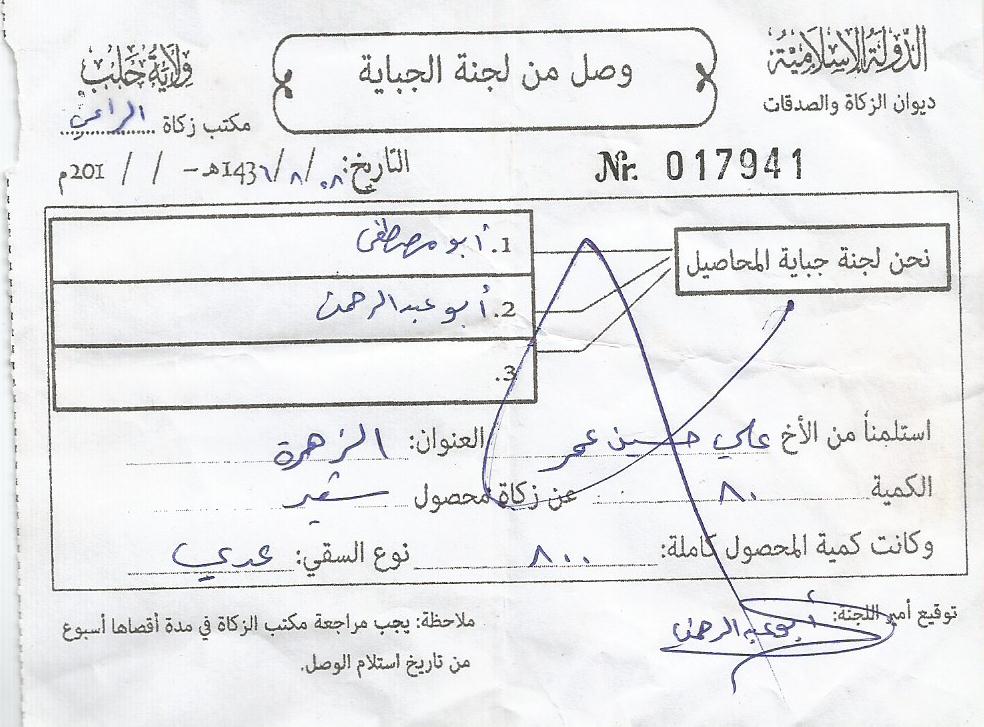 الدولة الإسلامية
ديوان الزكاة والصدقات
وصل من لجنة الجباية
ولاية حلب
مكتب زكاة الراعي
Nr. 017941
التاريخ: ٠٨ / ٨ / 143٦هـ - / / 201م
نحن لجنة جباية المحاصيل
1. أبو مصطفى
2. أبو عبد الرحمن
3.
استلمنا من الأخ علي حسين عمر العنوان: الزهرة
الكمية ٨٠ عن زكاة محصول شعير
وكانت كمية المحصول كاملة: ٨٠٠ نوع السقي: عدي
توقيع أمير اللجنة: أبو عبد الرحمن
ملاحظة: يجب مراجعة مكتب الزكاة في مدة أقصاها أسبوع
من تاريخ استلام الوصل.